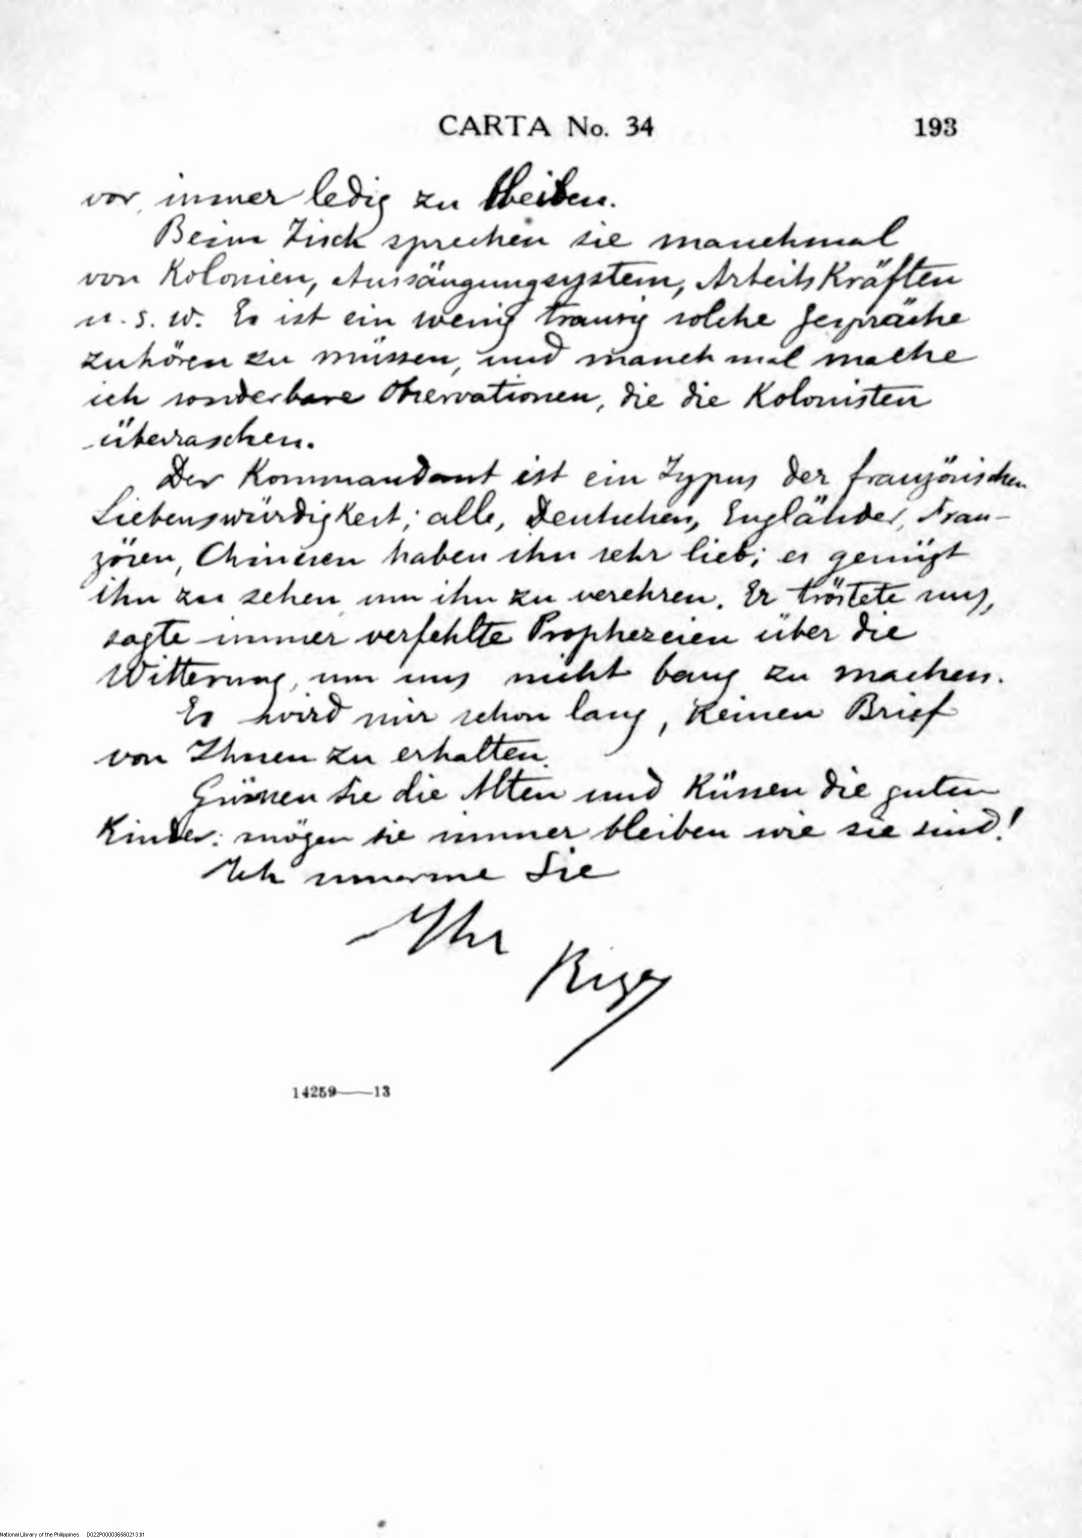 CARTA No. 34 193
vor, immer ledig zu bleiben.
Beim Tisch sprechen sie manchmal
von Kolonien, Aussäugungsystem, Arbeitskräften
u. s. w. Es ist ein wenig traurig solche Gespräche
zuhören zu müssen, und manchmal mache
ich sonderbare Observationen, die die Kolonisten
überraschen.
Der Kommandant ist ein Typus der französischen
Liebenswürdigkeit; alle, Deutschen, Engländer, Fran-
zösen, Chinesen haben ihn sehr lieb; es genügt
ihn zu sehen um ihn zu verehren. Er tröstete uns,
sagte immer verfehlte Prophezeien über die
Witterung, um uns nicht bang zu machen.
Es wird mir schon lang, keinen Brief
von Ihnen zu erhalten.
Grüssen Sie die Alten und küssen die guten
Kinder: mögen sie immer bleiben wie sie sind!
Ich umarme Sie
Ihr
Rizal
14259——13
National Library of the Philippines